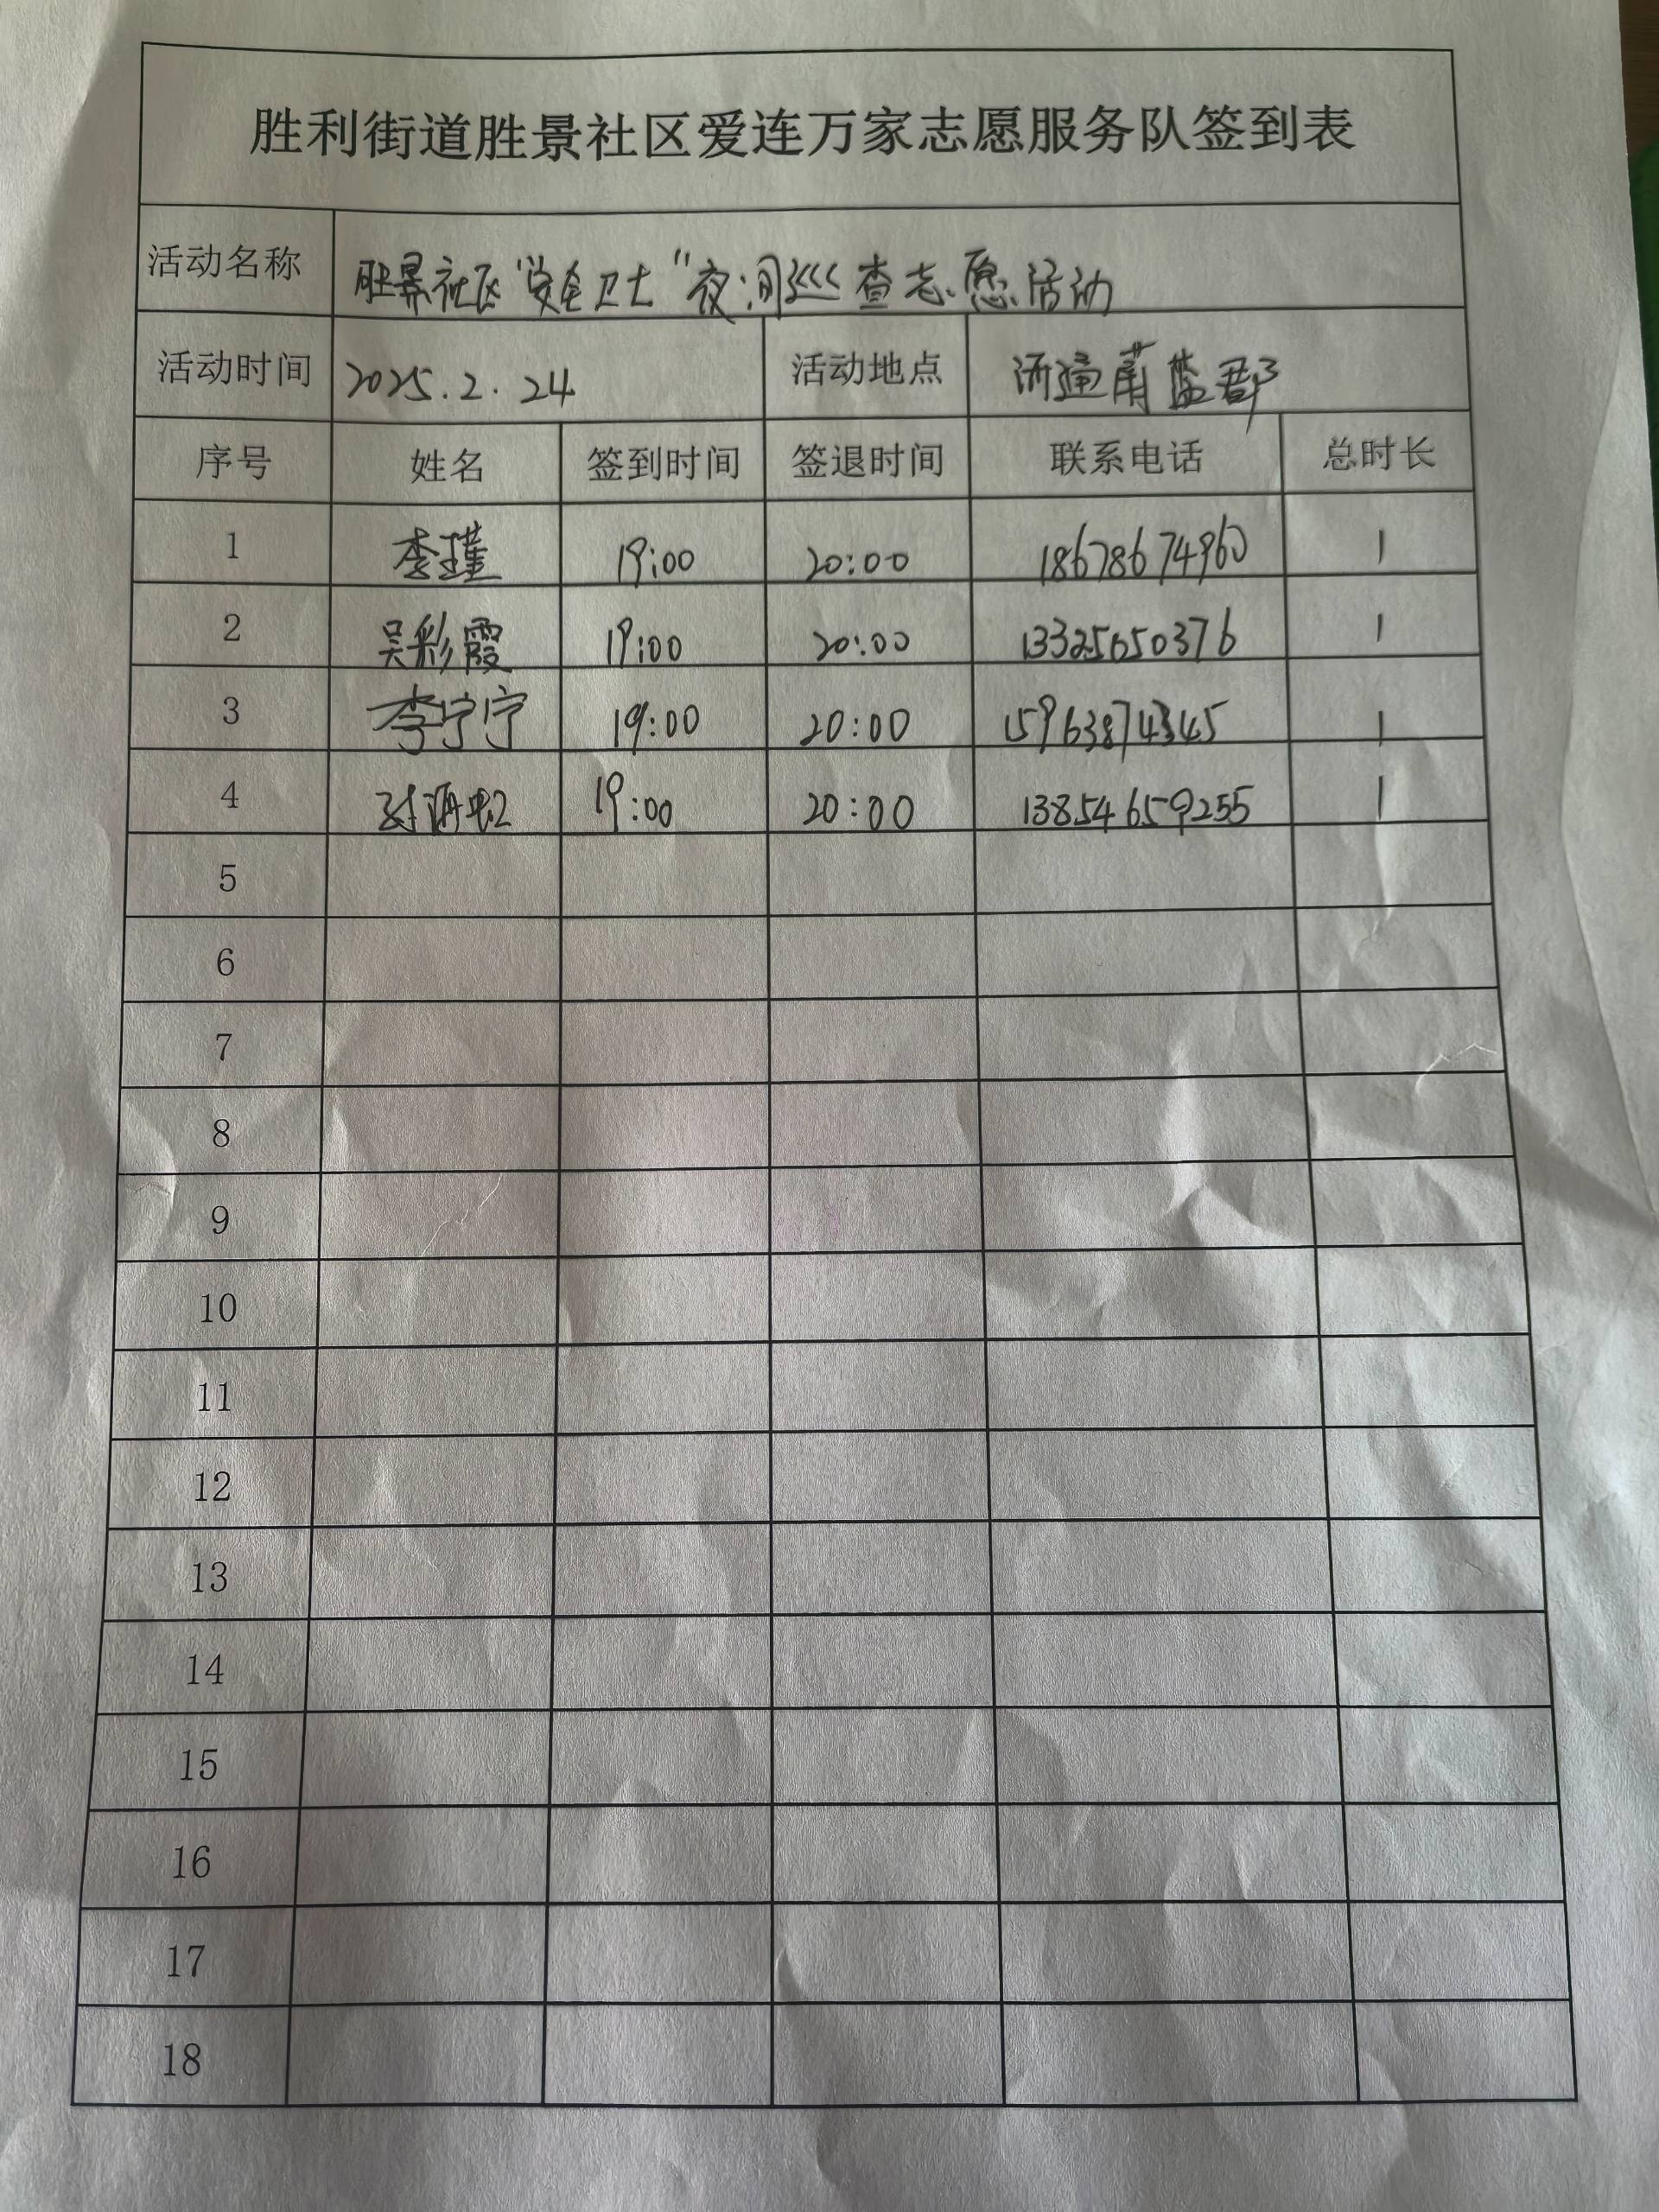 胜利街道胜景社区爱连万家志愿服务队签到表
活动名称 胜景社区"安全卫士"夜间巡查志愿活动
活动时间 2025.2.24 活动地点 流通蔚蓝郡
序号 姓名 签到时间 签退时间 联系电话 总时长
1 李瑾 19:00 20:00 18678674960 1
2 吴彩霞 19:00 20:00 13325650376 1
3 李宁宁 19:00 20:00 15963874345 1
4 19:00 20:00 13854659255 1
5
6
7
8
9
10
11
12
13
14
15
16
17
18